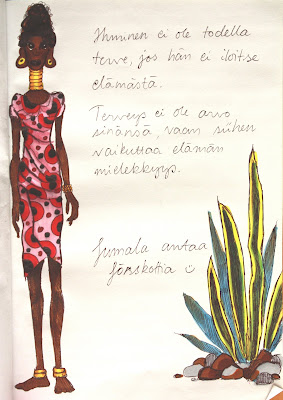 Ihminen ei ole todella
terve, jos hän ei iloitse
elämästä.
Terveys ei ole arvo
sinänsä, vaan siihen
vaikuttaa elämän
mielekkyys.
Jumala antaa
jönskotia ☺